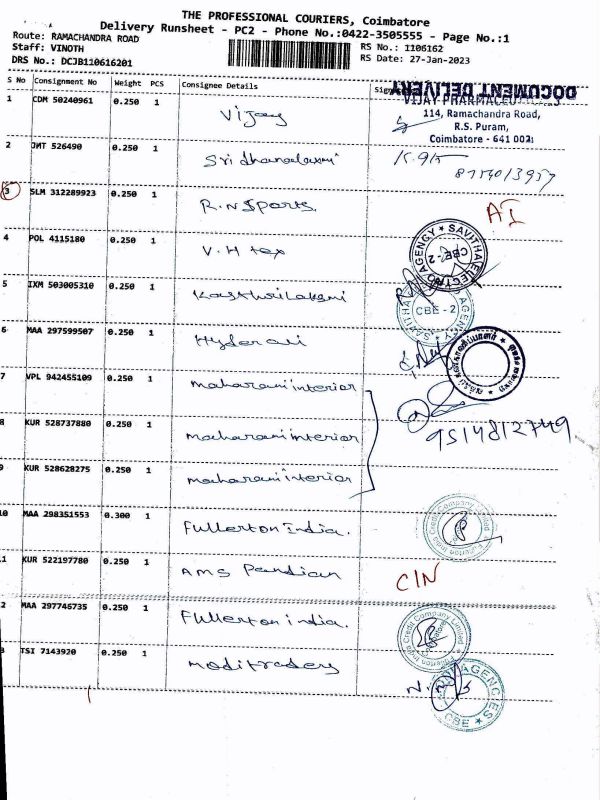 THE PROFESSIONAL COURIERS, Coimbatore
Delivery Runsheet - PC2 - Phone No.:0422-3505555 - Page No.:1
Route: RAMACHANDRA ROAD
Staff: VINOTH
RS No.: 1106162
DRS No.: DCJB110616201
RS Date: 27-Jan-2023
S No Consignment No Weight PCS Consignee Details
DOCUMENT DELIVERY
1 CDM 50240961 0.250 1 Vijay
VIJAY PHARMACEUTICALS
114, Ramachandra Road,
R.S. Puram,
Coimbatore - 641 002
2 JMT 526490 0.250 1 Sri dhanalaxmi
3 SLM 312289923 0.250 1 R.N Sports
AI
4 POL 4115180 0.250 1 V.H tex
SAVITHA ELECTRO AGENCY
CBE-2
5 IXM 503005310 0.250 1 Kasthurilaxmi
CBE-2
6 MAA 297599507 0.250 1 Hyder ali
7 VPL 942455109 0.250 1 maharani interior
8 KUR 528737880 0.250 1 maharani interior
9514812749
9 KUR 528628275 0.250 1 maharani interior
10 MAA 298351553 0.300 1 Fullerton India.
Fullerton India Credit Company Limited
11 KUR 522197780 0.250 1 AMS Pandian
CIN
12 MAA 297746735 0.250 1 Fullerton india.
Fullerton India Credit Company Limited
Coimbatore
13 TSI 7143920 0.250 1 Modi traders
AGENCIES
CBE